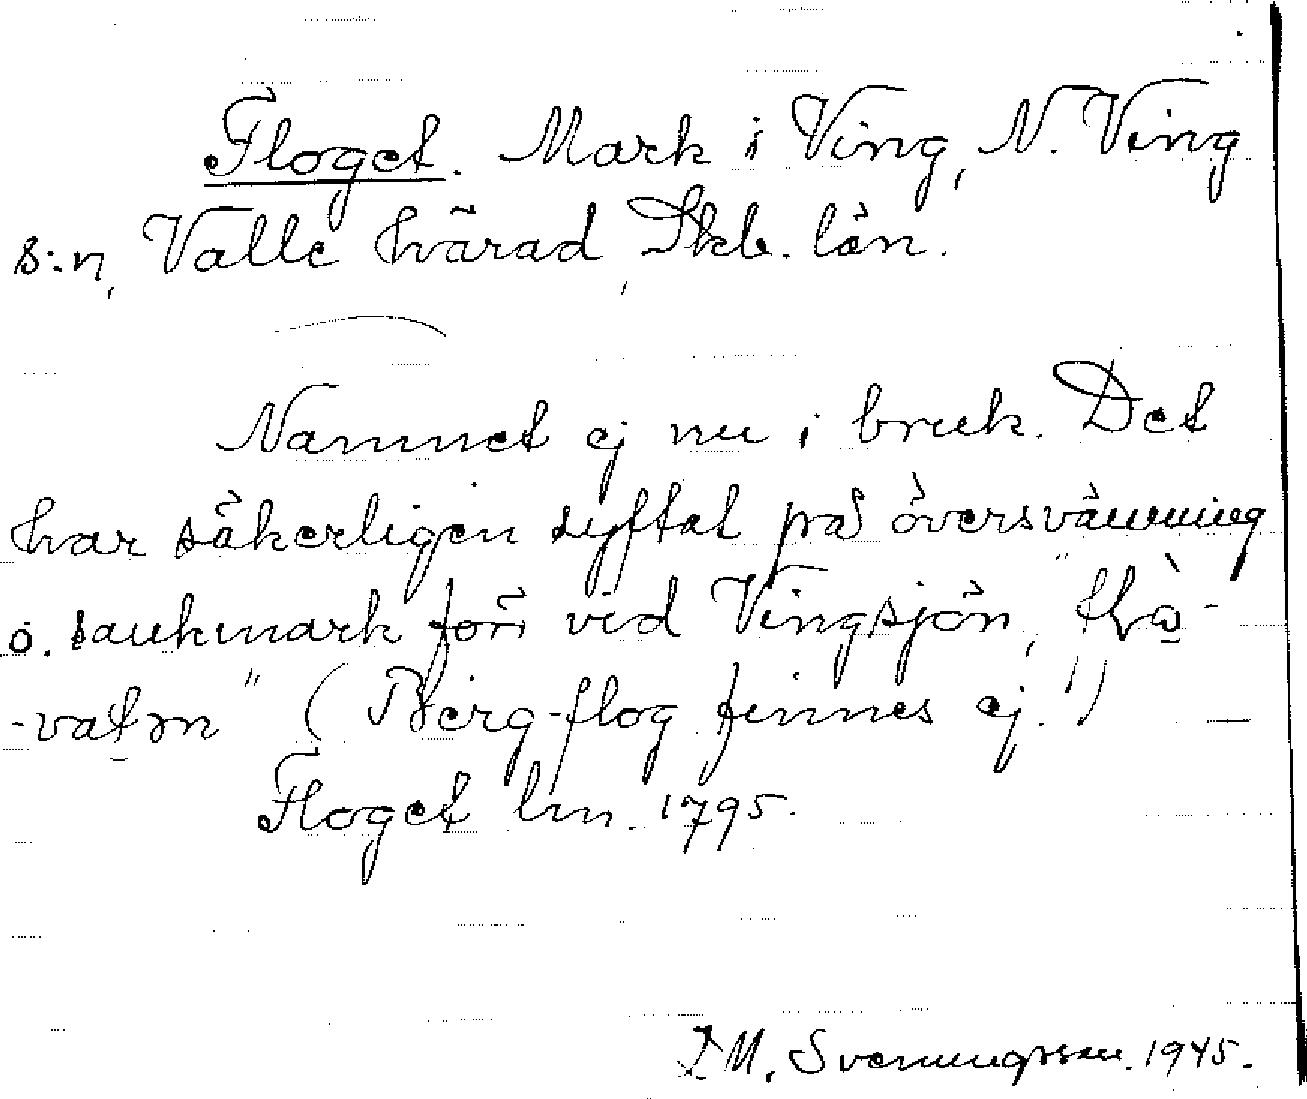 Floget. Mark i Ving, N. Ving
s:n, Valle härad, Skb. län.
Namnet ej nu i bruk. Det
har säkerligen syftat på översvämning
o. sankmark förr vid Vingsjön,
( Berg-flog finnes ej. ) —
Floget lm. 1795.
M. Svenungsson. 1945.